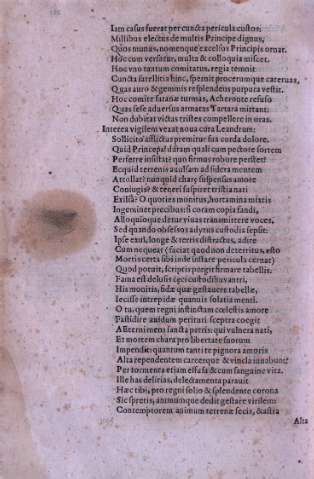 Iam casus fuerat per cuncta pericula custos:
Millibus electus de multis Principe dignus,
Quos munus, nomenque excelsi Principis ornat.
Hoc cum versatur, multa & colloquia miscet.
Hoc vno tantum comitatus, regia temnit
Cuncta satellitia hinc, spernit procerumque cateruas,
Quas auro & gemmis resplendens purpura vestit.
Hoc comite Satanæ turmas, Acheronte refuso
Quas sese aduersus armatas Tartara mittant:
Non dubitat victas tristes compellere in vras.
Interea vigilem vexat noua cura Leandrum:
Sollicito afflictus premitur sua corda dolore.
Quid Princeps? diram quali cum pectore sortem
Perferre insistat? quo firmus robore perstet?
Ecquid terrenis auulsam ad sidera mentem
Attollat? num quid charæ suspensus amore
Coniugis? & teneri suspiret tristia nati
Exilia? O quoties monitus, hortamina mixtis
Ingeminet precibus: si coram copia fandi,
Alloquiique detur viuas transmittere voces,
Sed quando obsessos adytus custodia sepsit:
Ipse exul, longe & terris distractus, adire
Cum nequeat (faciat quod non deterritus, esto
Mortis certa sibi inde instare pericula cernat)
Quod poterit, scriptis pergit firmare tabellis.
Fama est delusis cæci custodibus antri,
His monitis, fidæ quæ gestauere tabellæ,
Iecisse intrepidæ quamuis solatia menti.
O tu, quem regni instinctam cœlestis amore
Fastidire auidum perituri sceptra coegit
Aeterni enim sancta patris: qui vulnera nati,
Et mortem chara pro libertate suorum
Impendit: quantum tanti te pignora amoris
Alta rependentem carcerque & vincla iuuabunt?
Per tormenta etiam effusa & cum sanguine vita.
Ille has delicias, delectamenta parauit
Hæc tibi, pro regni solio & splendente corona
Sic spretis, animumque dedit gestare virilem
Contemptorem animum terrenæ fæcis, & astra
Alta